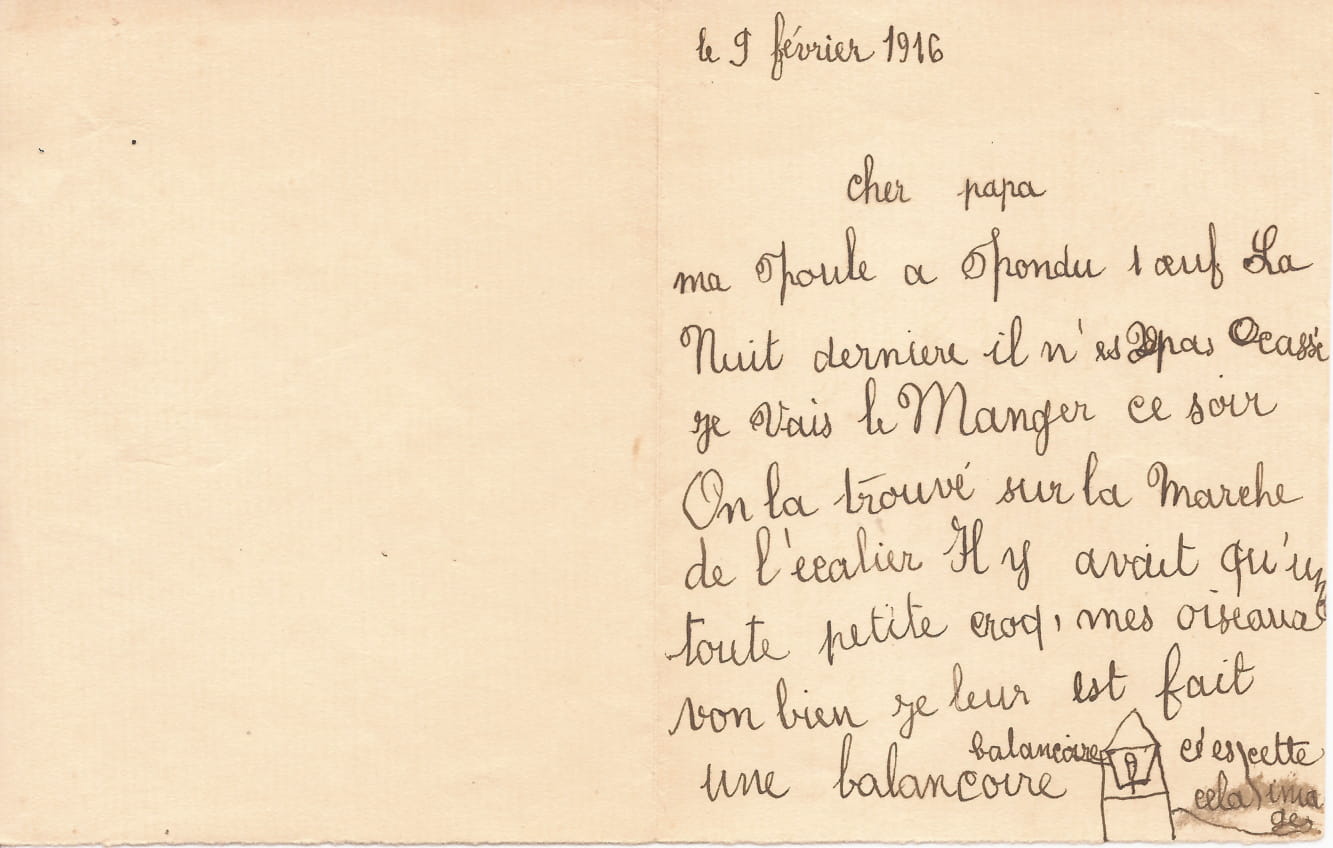 le 9 février 1916
cher papa
ma Poule a Pondu 1 œuf La
Nuit derniere il n'es pas cassé
je Vais le Manger ce soir
On la trouvé sur la Marche
de l'ecalier Il y avait qu'une
toute petite croq, mes oiseaux
von bien je leur est fait
une balancoire
balancoire
c'es cette
cela